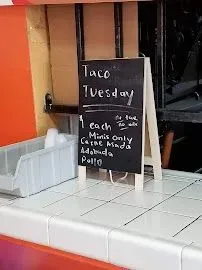 Taco
Tuesday
1 each
Minis only
Carne Asada
Adobada
Pollo